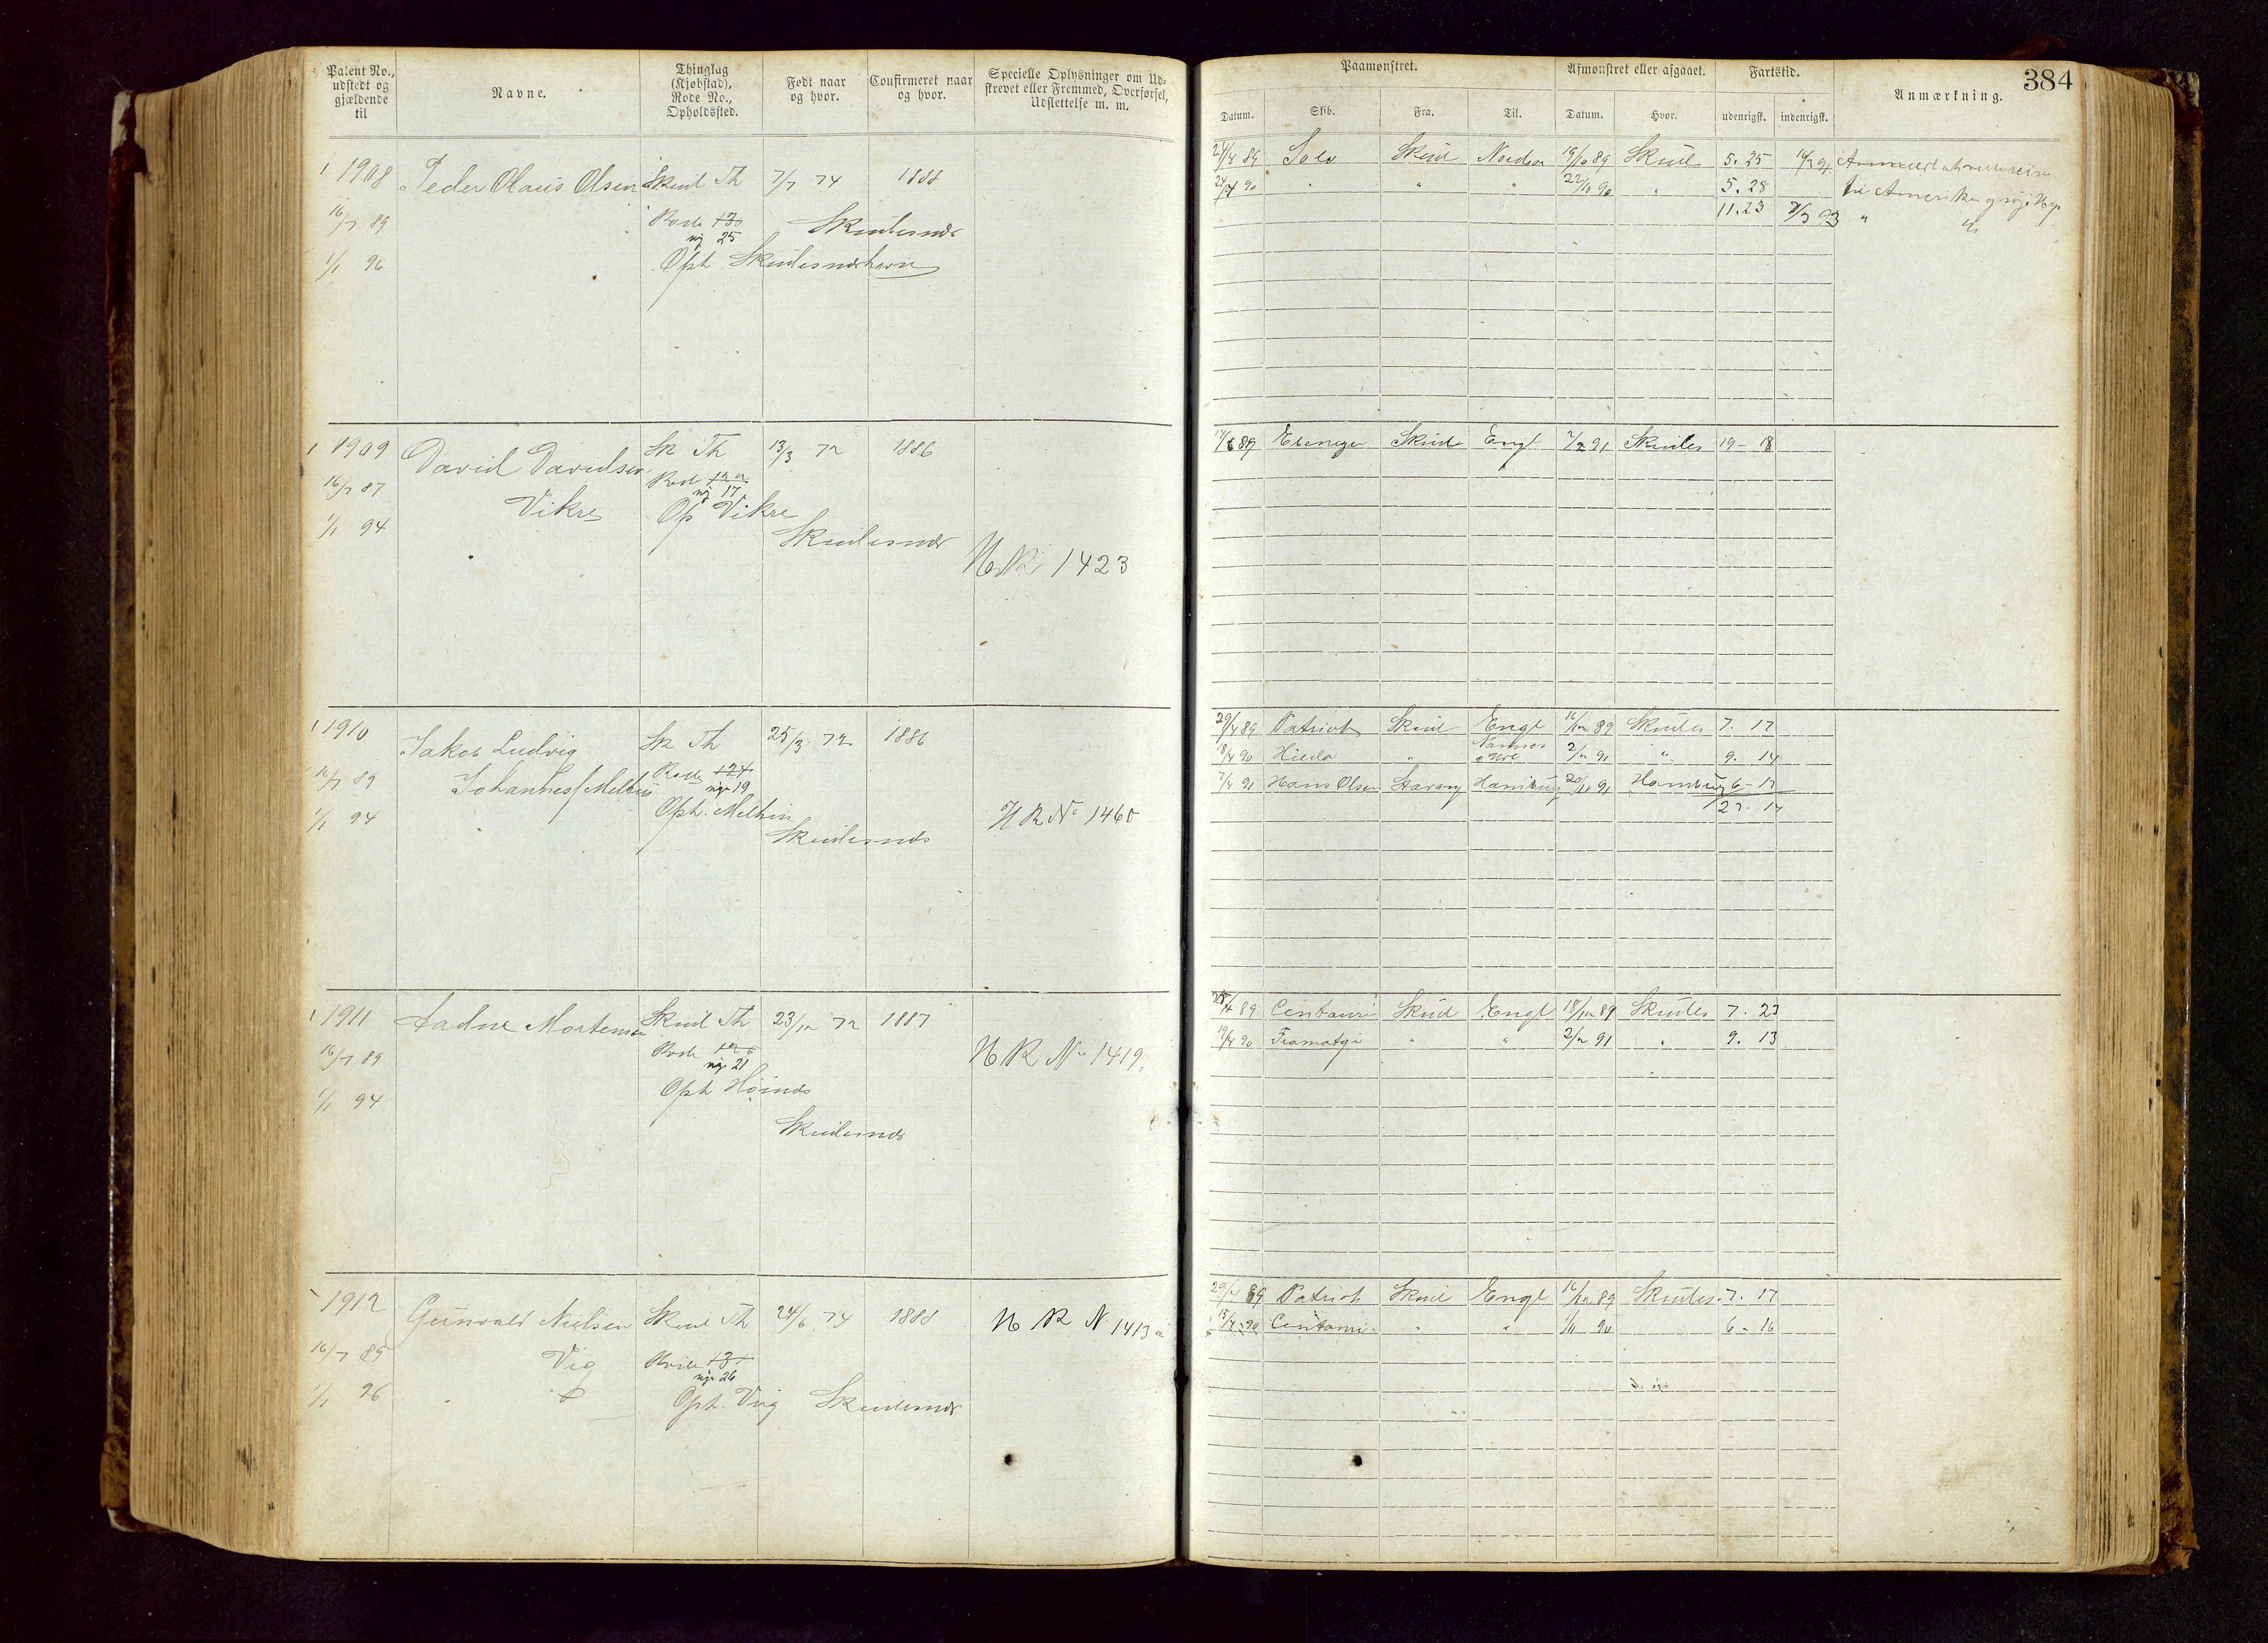 Patent No., udstedt og gjældende til
Navne.
Thinglag (Kjøbstad), Rode No., Opholdssted.
Født naar og hvor.
Confirmeret naar og hvor.
Specielle Oplysninger om Udskrevet eller Fremmed, Overførsel, Udslettelse m. m.
Paamønstret.
Afmønstret eller afgaaet.
Fartstid.
Anmærkning.
384
Datum.
Skib.
Fra.
Til.
Datum.
Hvor.
udenrigsk.
indenrigsk.
1908 Peder Olaus Olsen Skud Th 7/7 74 1888
16/7 89 Rode 130 Skudesnæs
ny 25
1/1 96 Oph Skudesnæshavn
24/4 89 Skud 19/10 89 Skud 5. 25
24/4 90 " " " 22/10 90 " 5. 28 til Amerika
11. 23 "
1909 David Davidsen Sk Th 13/3 72 1886
16/7 87 Vikre Rode
ny 17
1/1 94 Op Vikre
Skudesnæs
HR 1423
89 Ebenezer Skud Engl 7/2 91 Skudes 19 - 18
1910 Jakob Ludvig Sk Th 25/3 72 1886
16/7 89 Johannes/Melhus Rode 124
nye 19
1/1 94 Oph. Melhus
Skudesnæs
H R No 1460
29/4 89 Patriot Skud Engl 16/12 89 Skudes 7. 17
18/4 90 Hilda " 2/2 91 " 9. 14
7/4 91 Hans Olsen Stavang Hamburg 20/10 91 Hamburg 6 - 13
23. 14
1911 Aadne Mortensen Skud Th 23/12 72 1887
16/7 89 Rode
nye 21
1/1 94 Oph Høines
Skudesnæs
H R No 1419.
89 Centauri Skud Engl 18/12 89 Skudes 7. 23
19/4 90 " " 2/2 91 " 9. 13
1912 Gunvald Nielsen Skud Th 24/6 74 1888
16/7 89 Vig Rode 131
nye 26
1/1 96 Oph. Vig Skudesnæs
H R N 1413
29/4 89 Patriot Skud Engl 16/12 89 Skudes 7. 17
15/4 90 Centauri " " 1/11 90 6 - 16